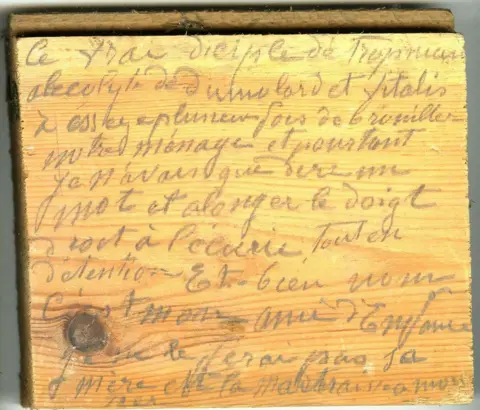 Ce vrai diciple de Tropmann
alccolyte de dumolard et Vitalis
à essaye plusieur fois de brouiller
notre ménage et pourtant
je n'avais que dire un
mot et alonger le doigt
droit à l'écurie, tout en
détention. Et bien nom
C'est mon ami d'Enfance
je ne le ferai pas sa
mère est la maitraisse a mon